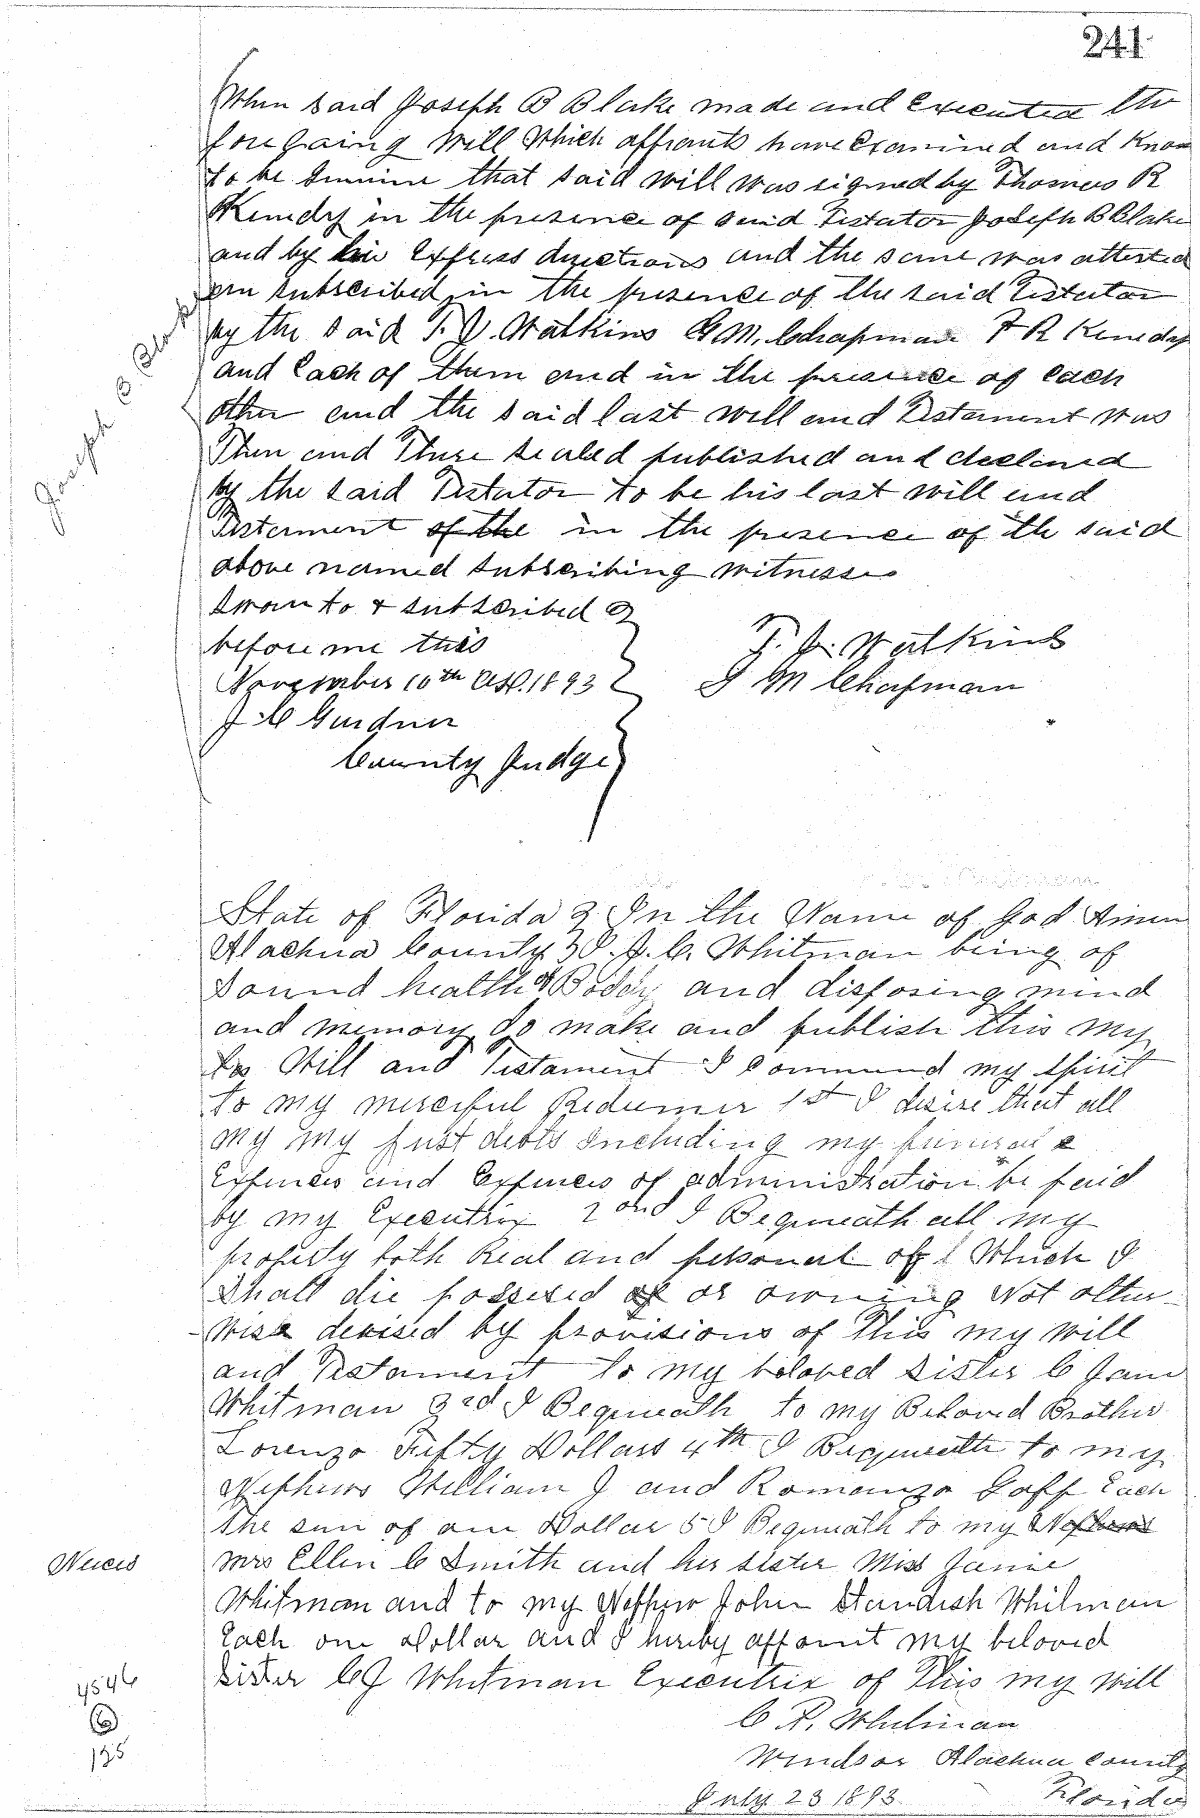 241
When said Joseph B Blake made and Executed the
foregoing Will Which affiants have Examined and Know
to be Genuine that said will was signed by Thomas R
Kenedy in the presence of said Testator Joseph B Blake
and by his Express directions and the same was attested
and subscribed in the presence of the said Testator
by the said T. J. Watkins G. M. Chapman T R Kenedy
and Each of them and in the presence of each
other and the said last will and Testament was
Then and There sealed published and declared
by the said Testator to be his last will and
Testament of the in the presence of the said
above named subscribing witnesses
Sworn to & subscribed
before me this
November 10th AD. 1893
J. C Gardner
County Judge
T. J. Watkins
G M Chapman
Joseph B Blake
State of Florida } In the Name of God Amen
Alachua County } I. C. Whitman being of
Sound health of Boddy and disposing mind
and memory do make and publish this my
Will and Testament I Commend my Spirit
to my merciful Redeemer 1st I desire that all
my my just debts Including my funeral
Expences and Expences of administration be paid
by my Executrix 2ond I Bequeath all my
property both Real and personal of Which I
Shall die possesed of or owning Not other-
wise devised by provisions of This my Will
and Testament to my beloved Sister C Jane
Whitman 3rd I Bequeath to my Beloved Brother
Lorenzo Fifty Dollars 4th I Bequeath to my
Nephews William J and Romanzo Goff Each
the sum of one Dollar 5 I Bequeath to my Nephews
Neices
Mrs Ellen C Smith and her sister Miss Janie
Whitman and to my Nephew John Standish Whitman
Each one Dollar and I hereby appoint my beloved
Sister C J Whitman Executrix of This my Will
4546
6
135
C. Whitman
Windsor Alachua County
July 23 1893 Florida